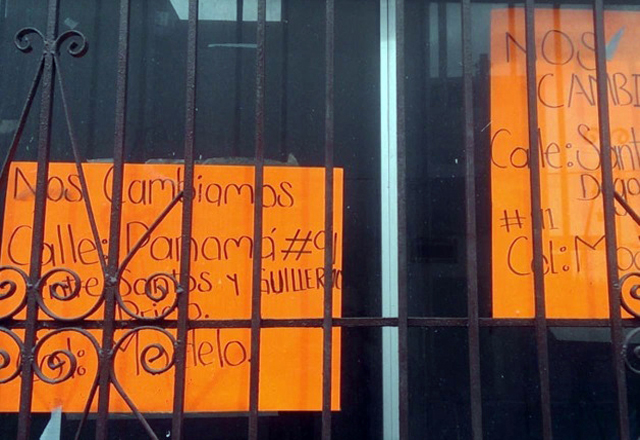 Nos Cambiamos
Calle: Panamá #91
Entre Santos y GUILLERMO
Prieto.
Col: Modelo.
NOS
CAMBI
Calle: Sant
Dego
#11
Col: Mod